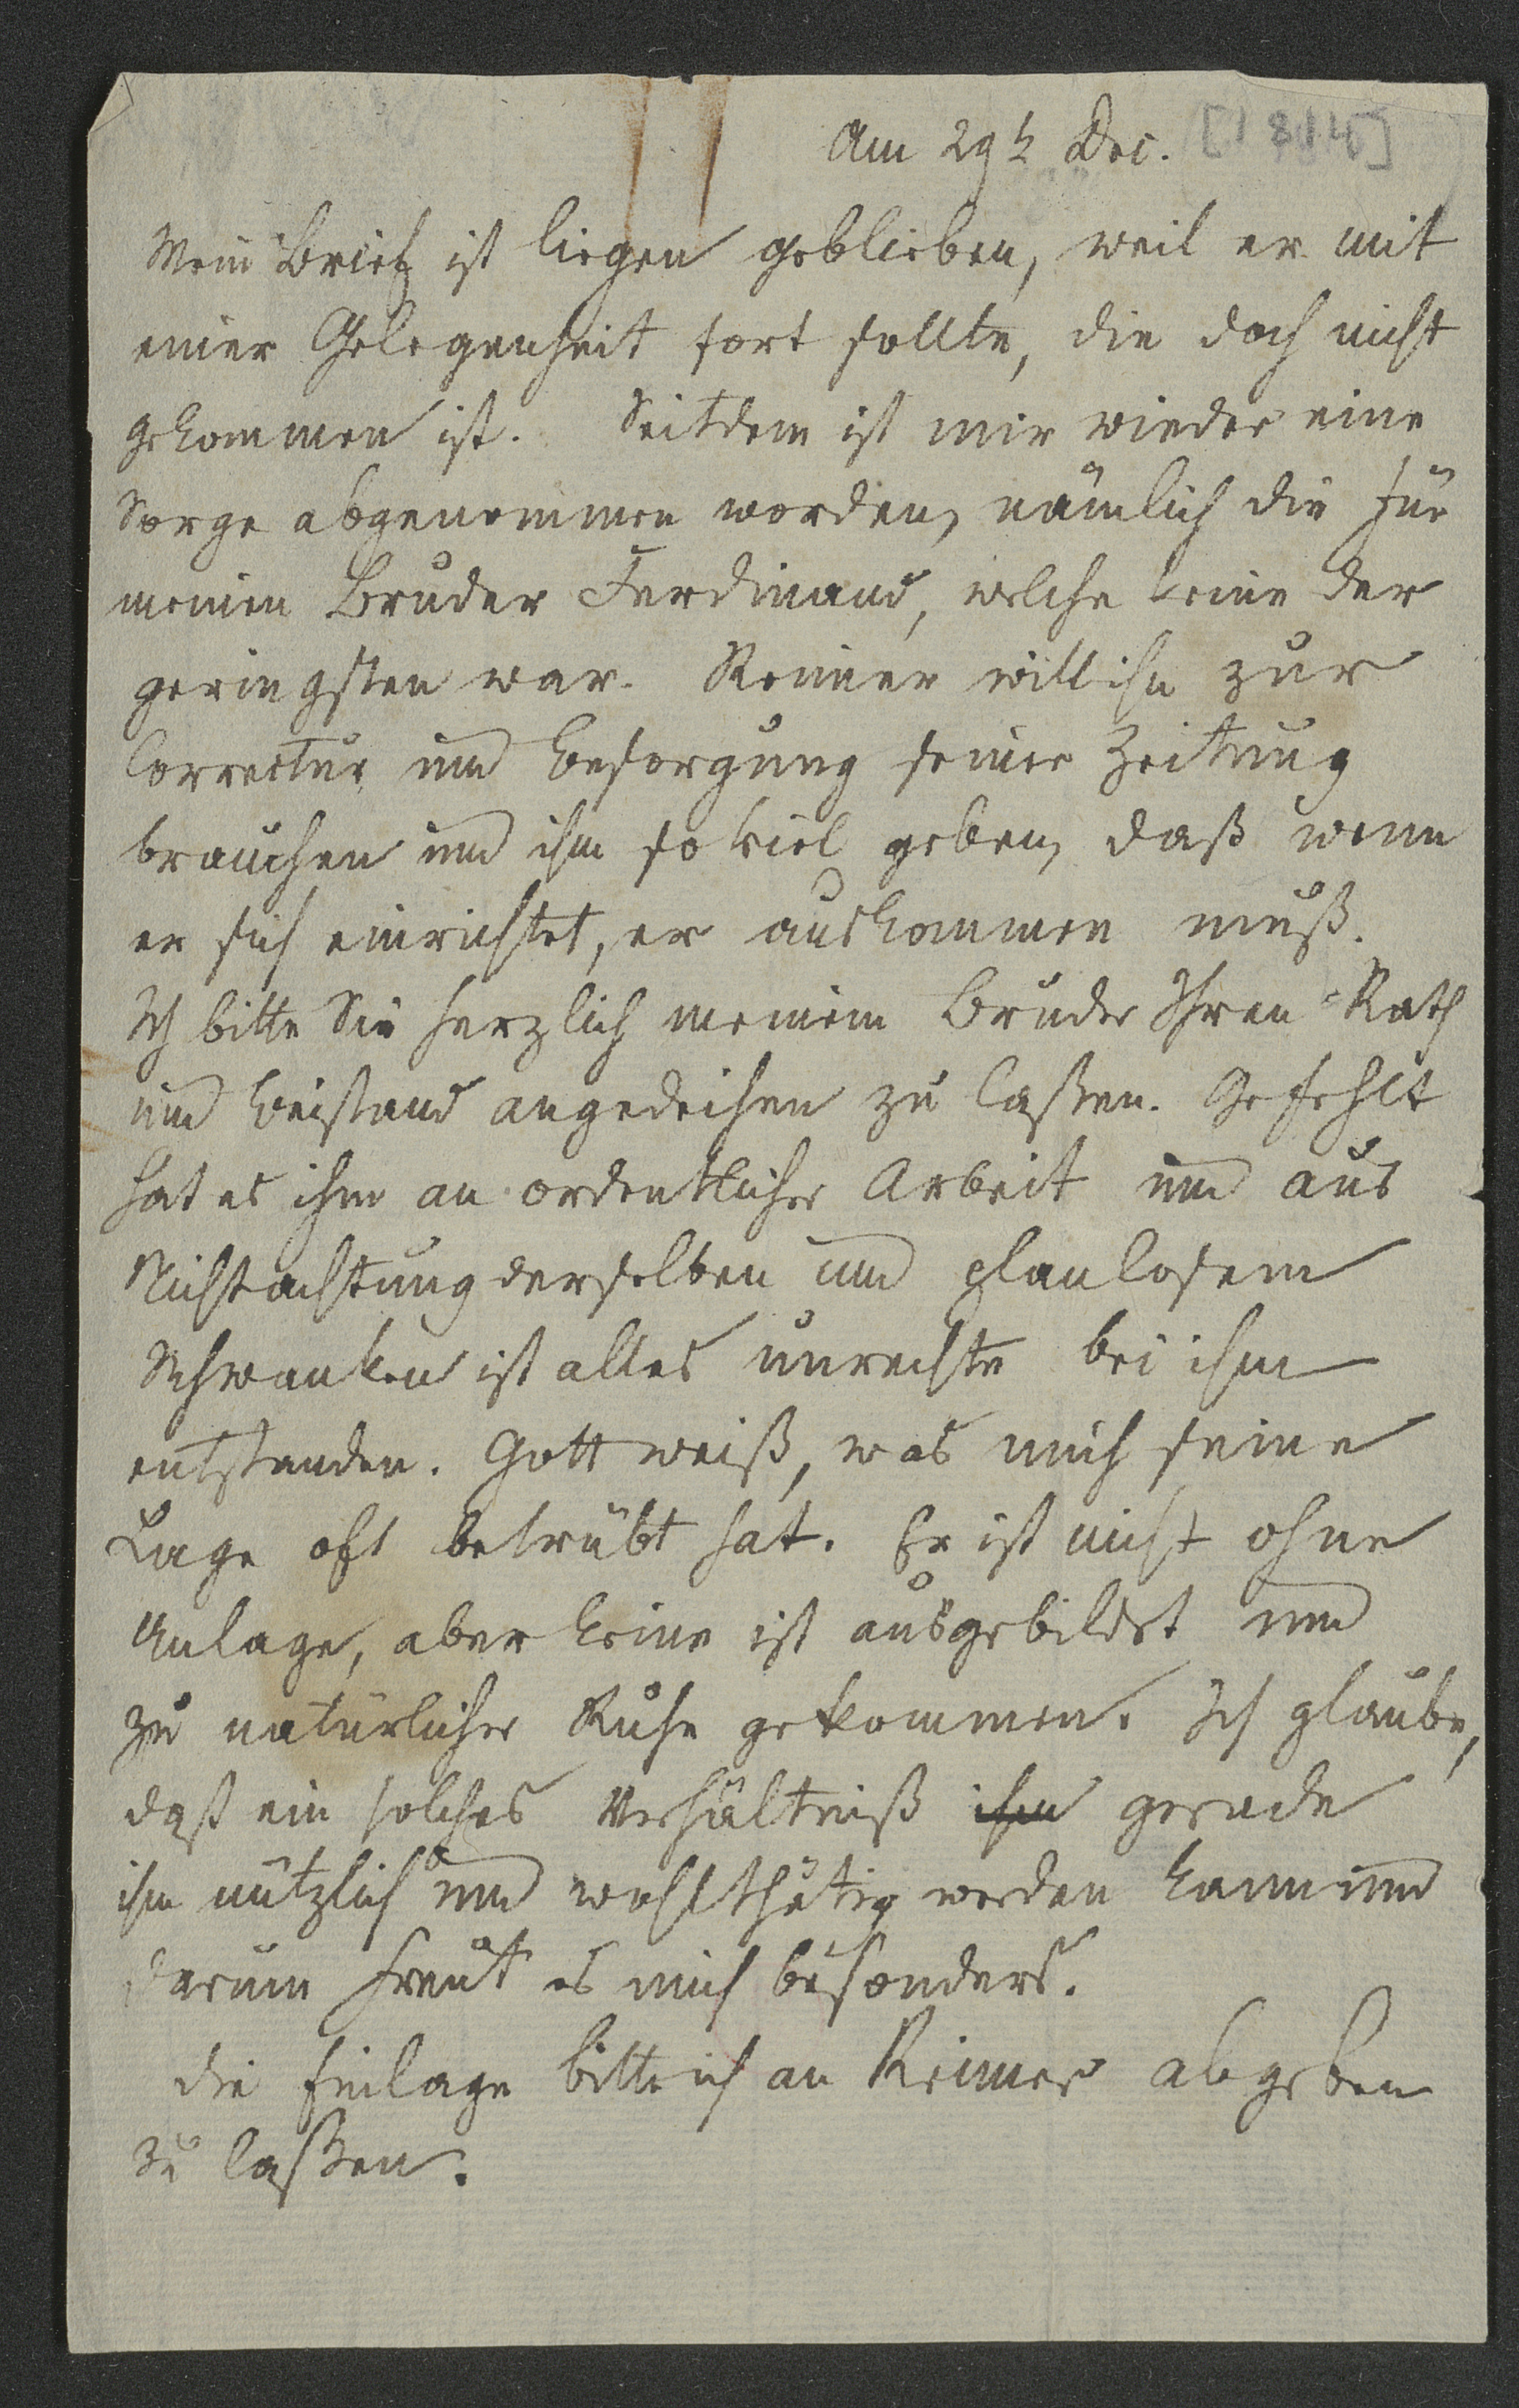 Am 29t Dec. [1814]
Mein Brief ist liegen geblieben, weil er mit
einer Gelegenheit fort sollte, die doch nicht
gekommen ist. Seitdem ist mir wieder eine
Sorge abgenommen worden, nämlich die für
meinen Bruder Ferdinand, welche keine der
geringsten war. Reimer will ihn zur
Correctur und Besorgung seiner Zeitung
brauchen und ihm so viel geben, daß wenn
er sich einrichtet, er auskommen muß.
Ich bitte Sie herzlich meinem Bruder Ihren Rath
und Beistand angedeihen zu laßen. Gefehlt
hat es ihm an ordentlicher Arbeit und aus
Nichtachtung derselben und planlosem
Schwanken ist alles unrechte bei ihm
entstanden. Gott weiß, was mich seine
Lage oft betrübt hat. Er ist nicht ohne
Anlage, aber keine ist ausgebildet und
zu natürlicher Ruhe gekommen. Ich glaube,
daß ein solches Verhältniß ihm gerade
ihm nützlich und wohlthätig werden kann und
darum freut es mich besonders.
Die Einlage bitte ich an Reimer abgeben
zu laßen.